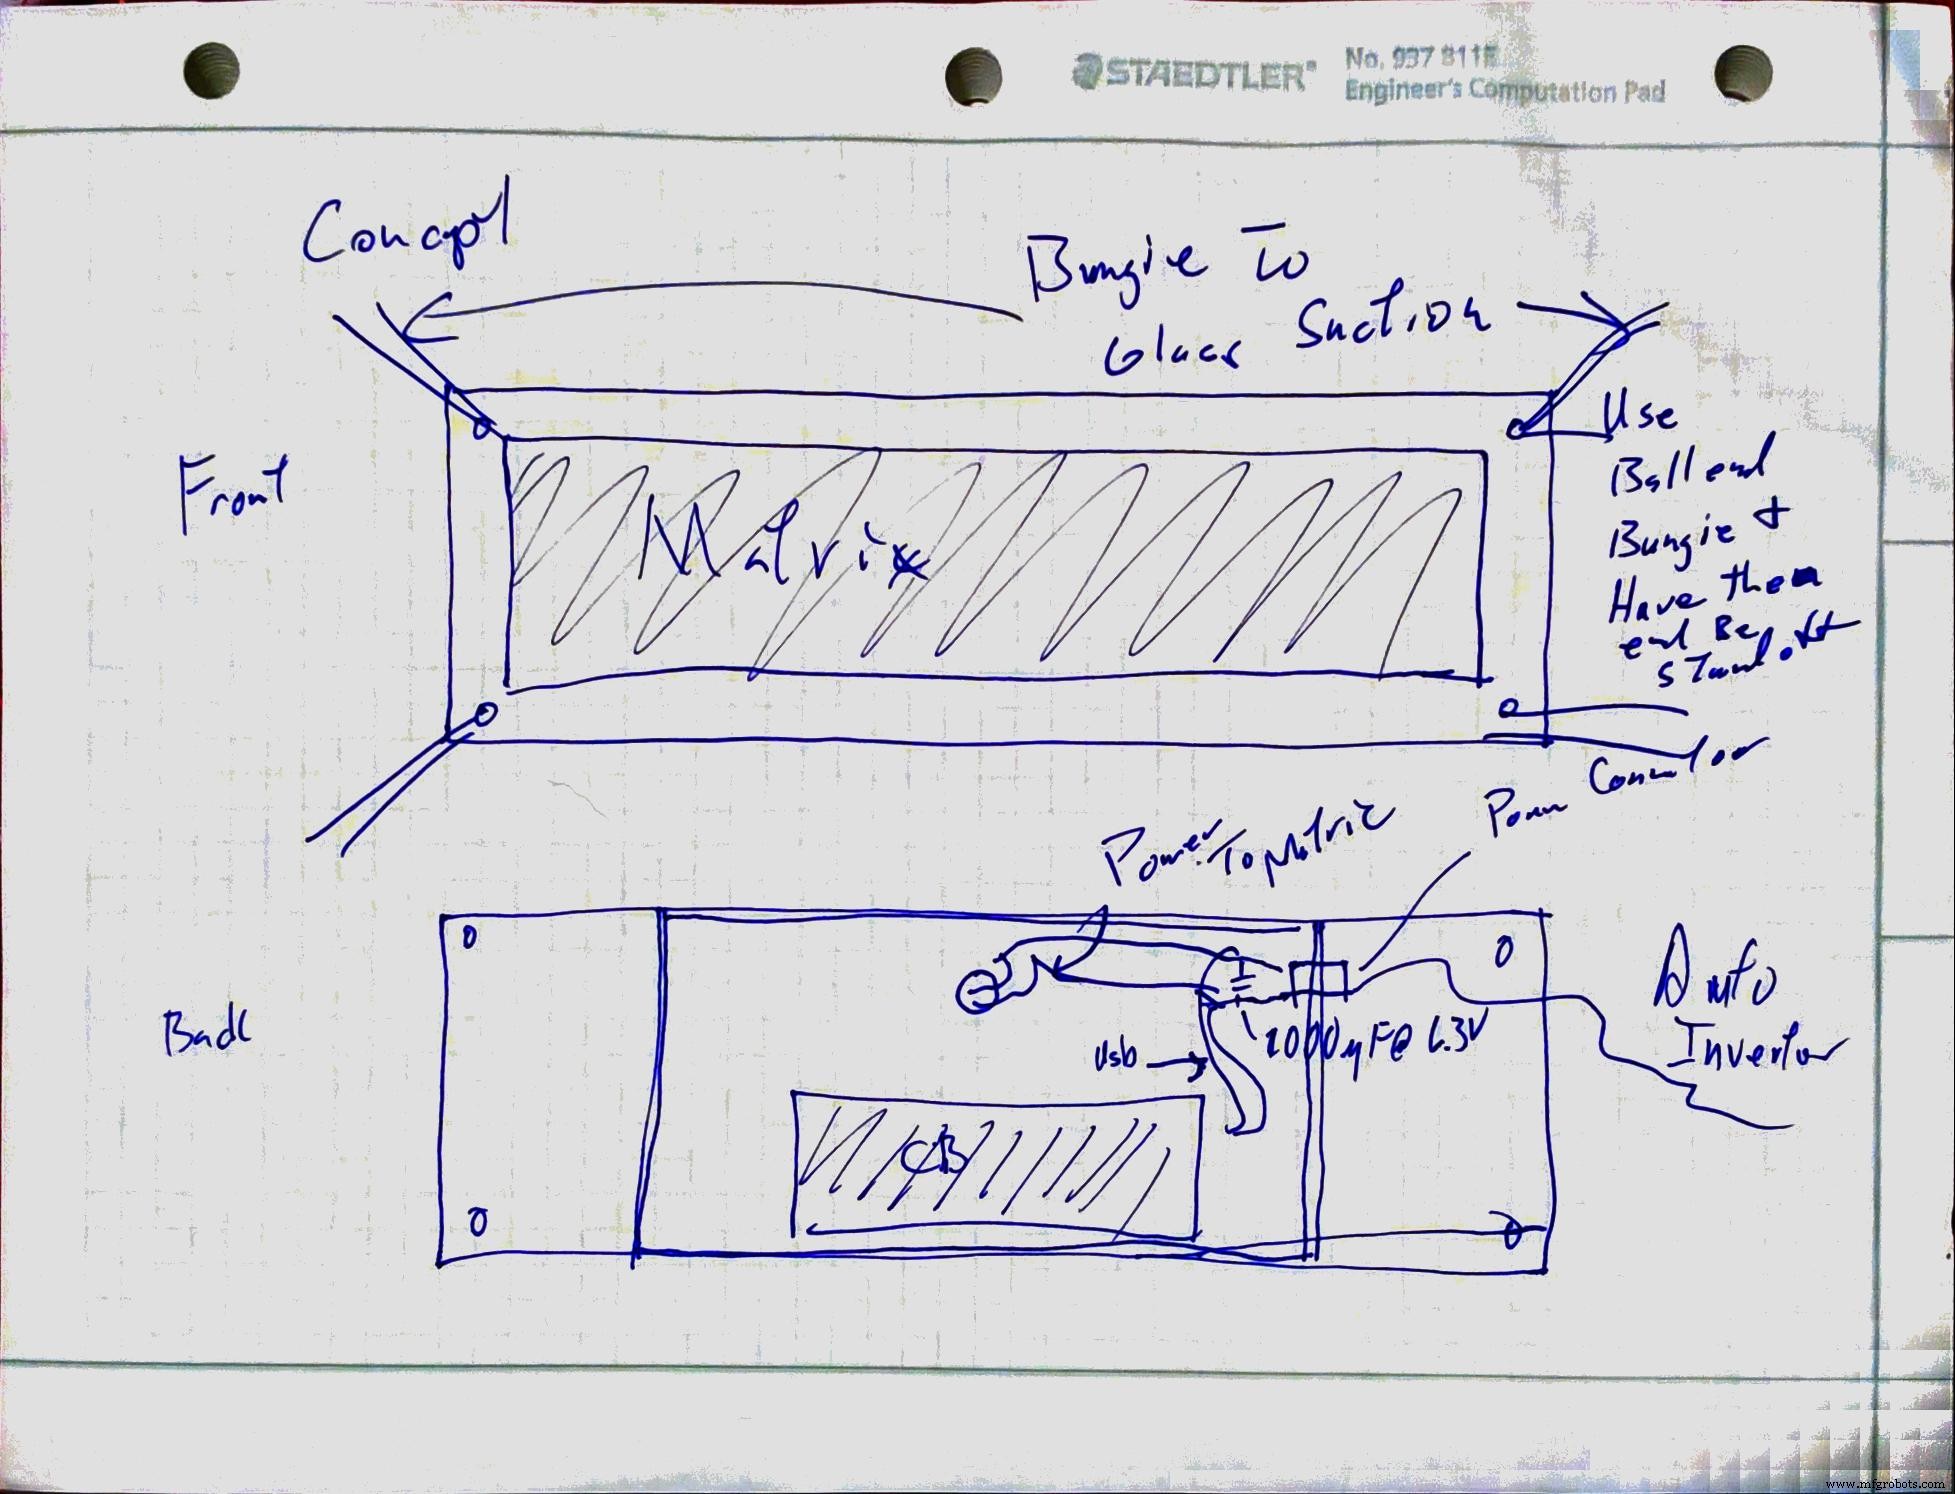 STAEDTLER®
No. 937 811E
Engineer's Computation Pad
Concept
Bungie To
Glass Suction
Front
Matrix
Use
Ball end
Bungie +
Have the
end Be
standoff
Power Connector
Power To Matric
Back
Auto
Invertor
usb
1000µF@ 6.3V
CB
www.mfgrobots.com